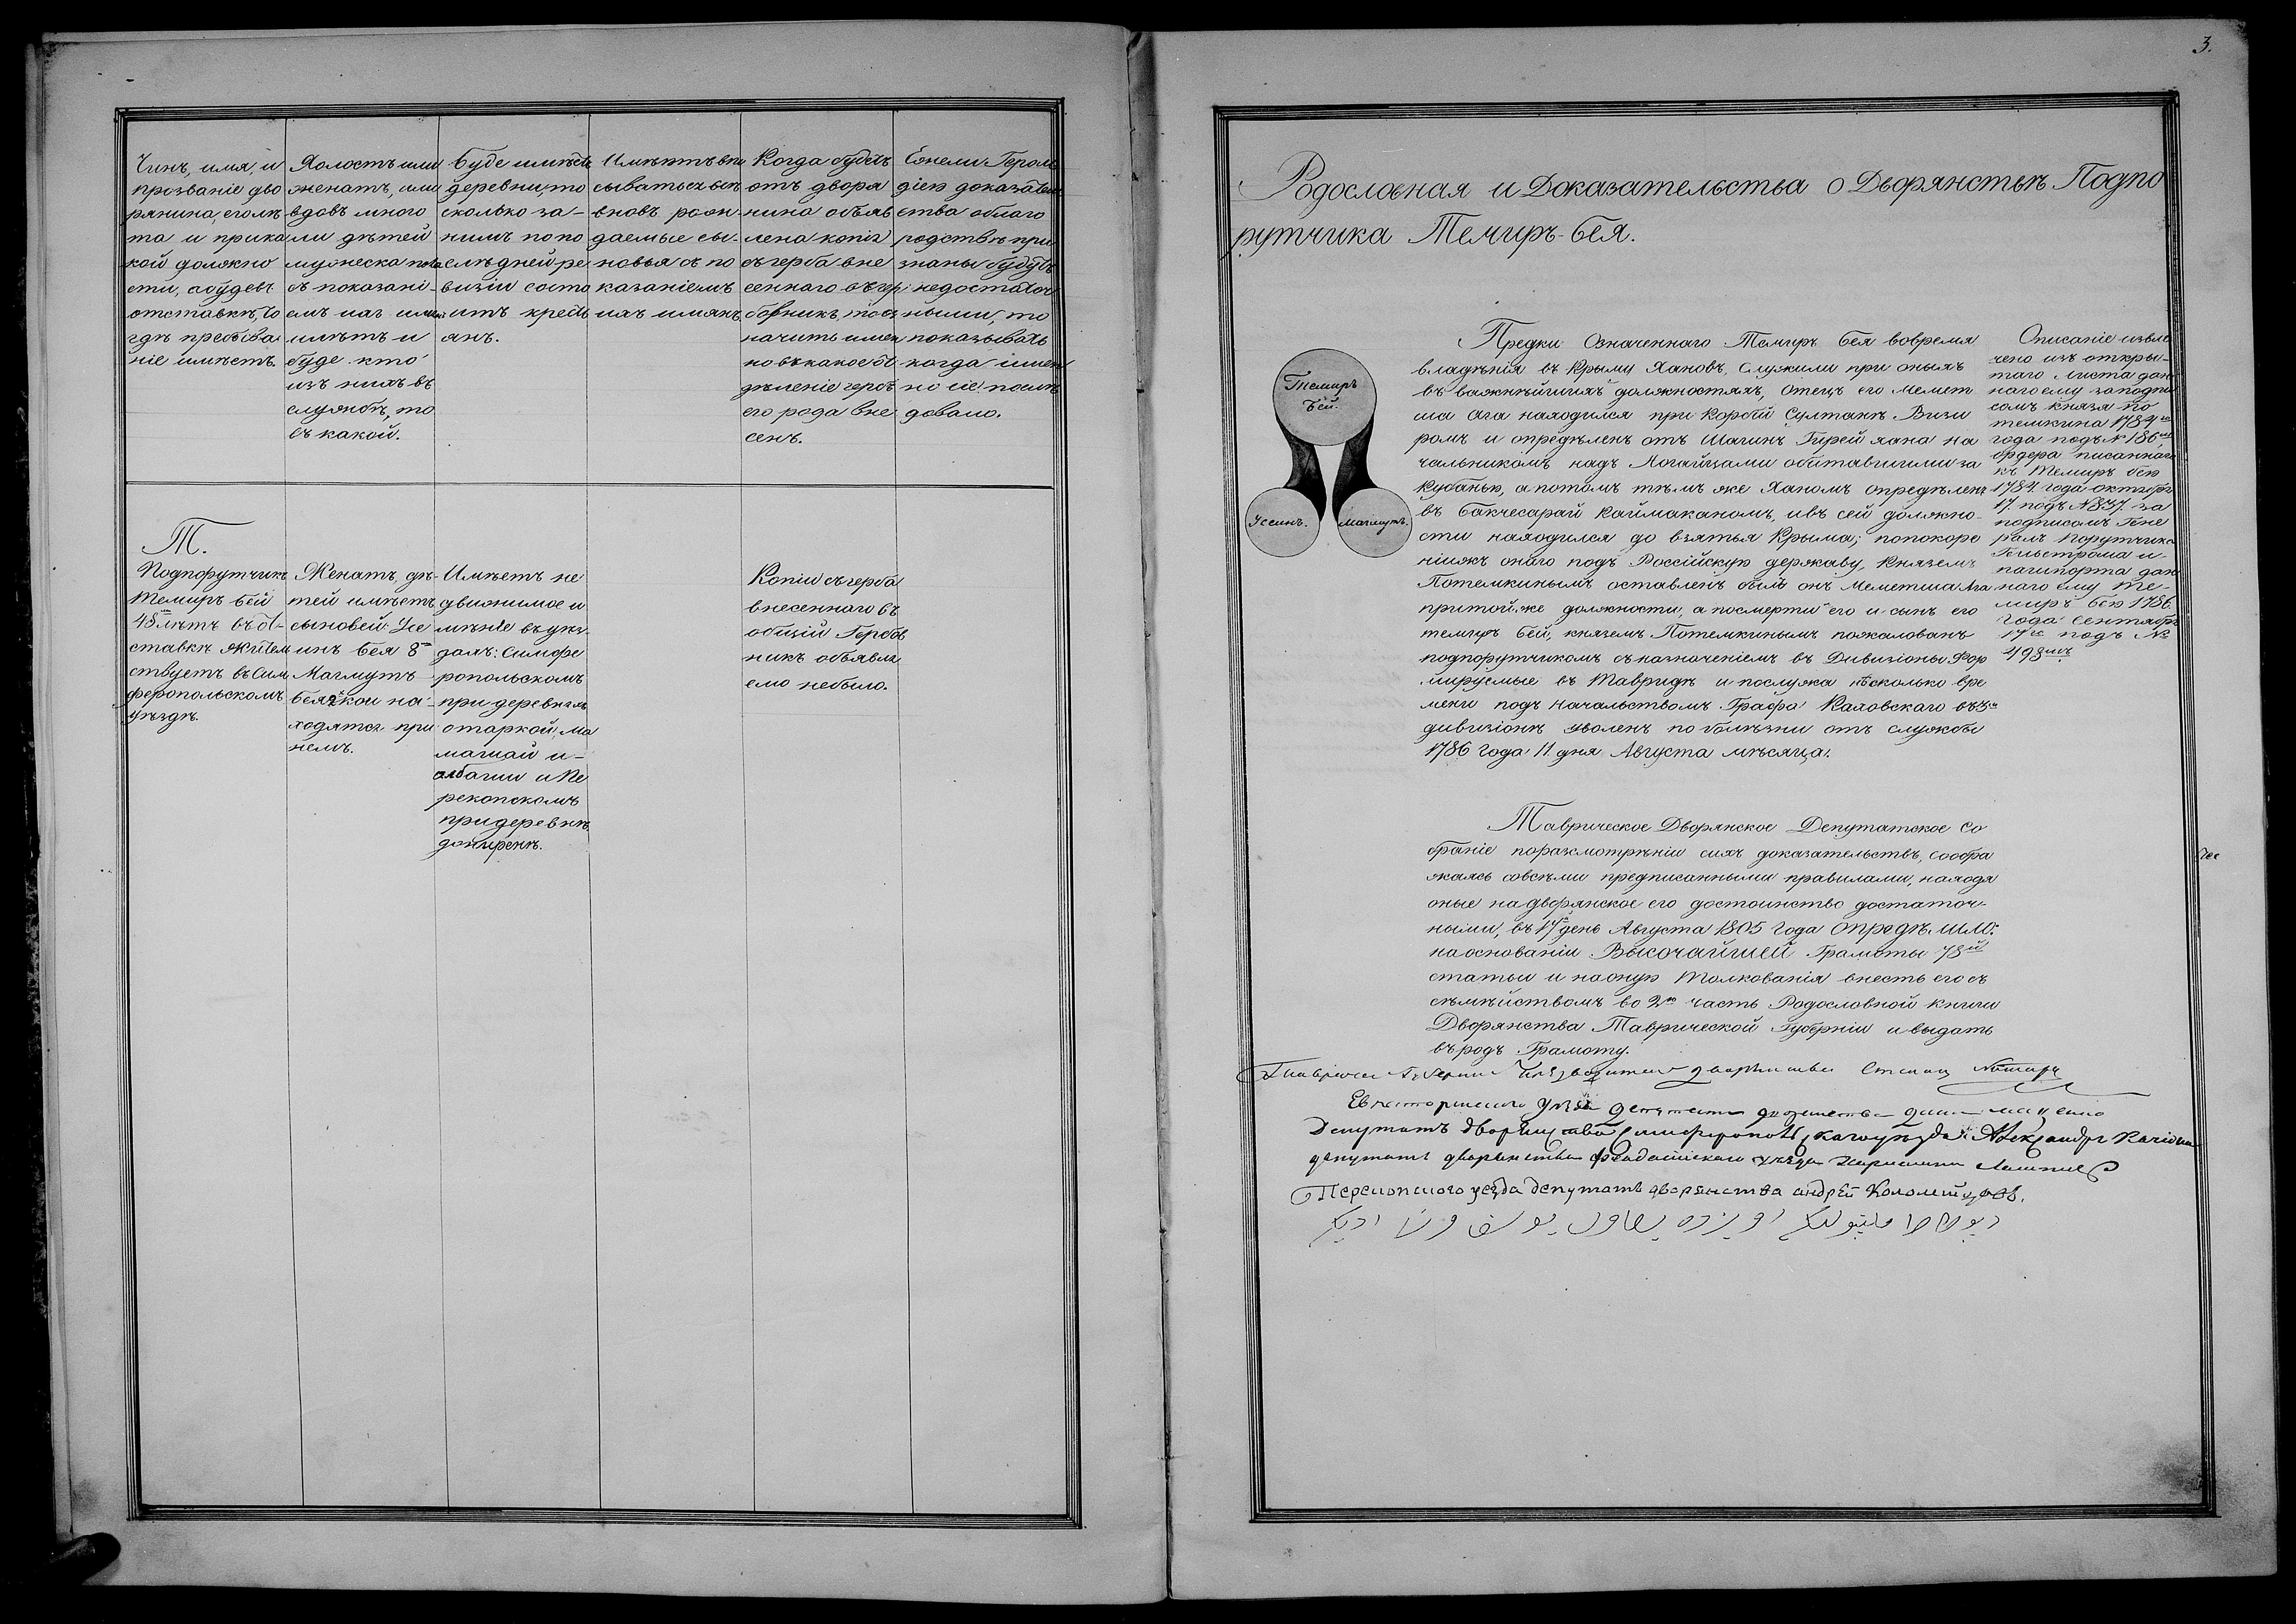 Чинъ, имя, и
прозваніе дво
рянина, его лѣ
та и при ка
кой должно
сти, а буде въ
отставкѣ, то
гдѣ пребыва
ніе имѣетъ.
Холостъ или
женатъ, или
вдовъ много
ли дѣтей
мужеска пола
съ показані-
емъ ихъ имянъ
имѣтъ и
буде кто
изъ нихъ въ
службѣ, то
въ какой.
Буде имѣетъ
деревни, то
сколько за-
нимъ по по
слѣдней ре
визіи состо
итъ крестъ
янъ.
сываться
вновь рож-
даемые сы-
новья съ по
казаніемъ
ихъ имянъ.
Когда будетъ
отъ дворя
нина объяв
лена копія
съ герба вне
сеннаго въ гер
бовникъ, то
начить имен
но въ какое от
дѣленіе гербъ
его рода вне
сенъ.
Ежели Герол
діею доказатель
ства облаго
родствѣ при
знаны будутъ
недостаточ
ными, то
показывать
когда имен
но сіе послѣ
довало.
Т.
Подпорутчикъ
Темиръ бей
лѣтъ въ от-
ставкѣ жител
ствуетъ въ Сим
феропольскомъ
уѣздѣ.
Женатъ, дѣ-
тей имѣетъ
сыновей: Усе
инъ бея 8
Магмутъ
бея кои на-
ходятся при
немъ.
Имѣетъ не
движимое и
мѣніе въ уѣз
дахъ: Симфе
ропольскомъ
при деревняхъ
отаркой, ма
машай и-
албаши и Пе
рекопскомъ
при деревнѣ
Копіи съ герба
внесеннаго въ
общій Гербов
никъ объявля
емо небыло.
3.
Родословная и Доказательства о Дворянствѣ Подпо
рутчика Темиръ-бея.
Темиръ
Бей.
Усеинъ.
Магмутъ.
Предки Означеннаго Темиръ бея вовремя
владѣнія въ Крыму Хановъ, Служили при оныхъ
въ важнѣйшихъ должностяхъ, Отецъ его Мемет
ша Ага находился при Султанѣ Визи
ромъ и опредѣленъ отъ Шагинъ Гирей хана на
чальникомъ надъ Ногайцами обитавшими за
Кубанью, а потомъ тѣмъ же Ханомъ опредѣленъ
въ Бакчесарай Каймаканомъ, ивъ сей должно-
сти находился до взятья Крыма; попокоре
ніижъ онаго подъ Россійскую державу, Княземъ
Потемкинымъ оставленъ былъ онъ Меметша Ага
притой же должности, а посмерти его и сынъ его
темиръ бей, княземъ Потемкинымъ пожалованъ
подпорутчикомъ съ назначеніемъ въ Дивизіоны Фор
мируемые въ Тавридѣ и послужа нѣсколько вре
мени подъ начальствомъ Графа Каховскаго въ
дивизіонѣ уволенъ по болѣзни отъ службы
1786 года 11 дня Августа мѣсяца.
Описаніе извле
чено изъ откры-
таго Листа дан
наго ему заподпи
сомъ князя По
темкина 1784го
года подъ № 186мъ
ордера писаннаго
къ Темиръ бею
1784 года октября
17 подъ № 837 за
подписомъ Гене
ралъ Порутчика
Гельстрома и
пашпорта дан
наго ему Те-
миръ бею 1786
года Сентября
17го подъ №
493мъ
Таврическое Дворянское Депутатское Со
браніе поразсмотрѣніи сихъ доказательствъ, сообра
жаясь совсѣми предписанными правилами, находя
оные надворянское его достоинство достаточ-
ными, въ 17й день Августа 1805 года опредѣлило:
наоснованіи Высочайшей Грамоты 78й
статьи и наоную Толкованія внесть его съ
сѣмѣйствомъ во 2ю часть Родословной книги
Дворянства Таврической Губерніи и выдать
въ родъ Грамоту.
Депутатъ дворянства Симферопольскаго уѣзда Александръ
депутатъ дворянства Феодосійскаго уѣзда
Перекопского уезда депутатъ дворянства андрей Коломийцовъ.